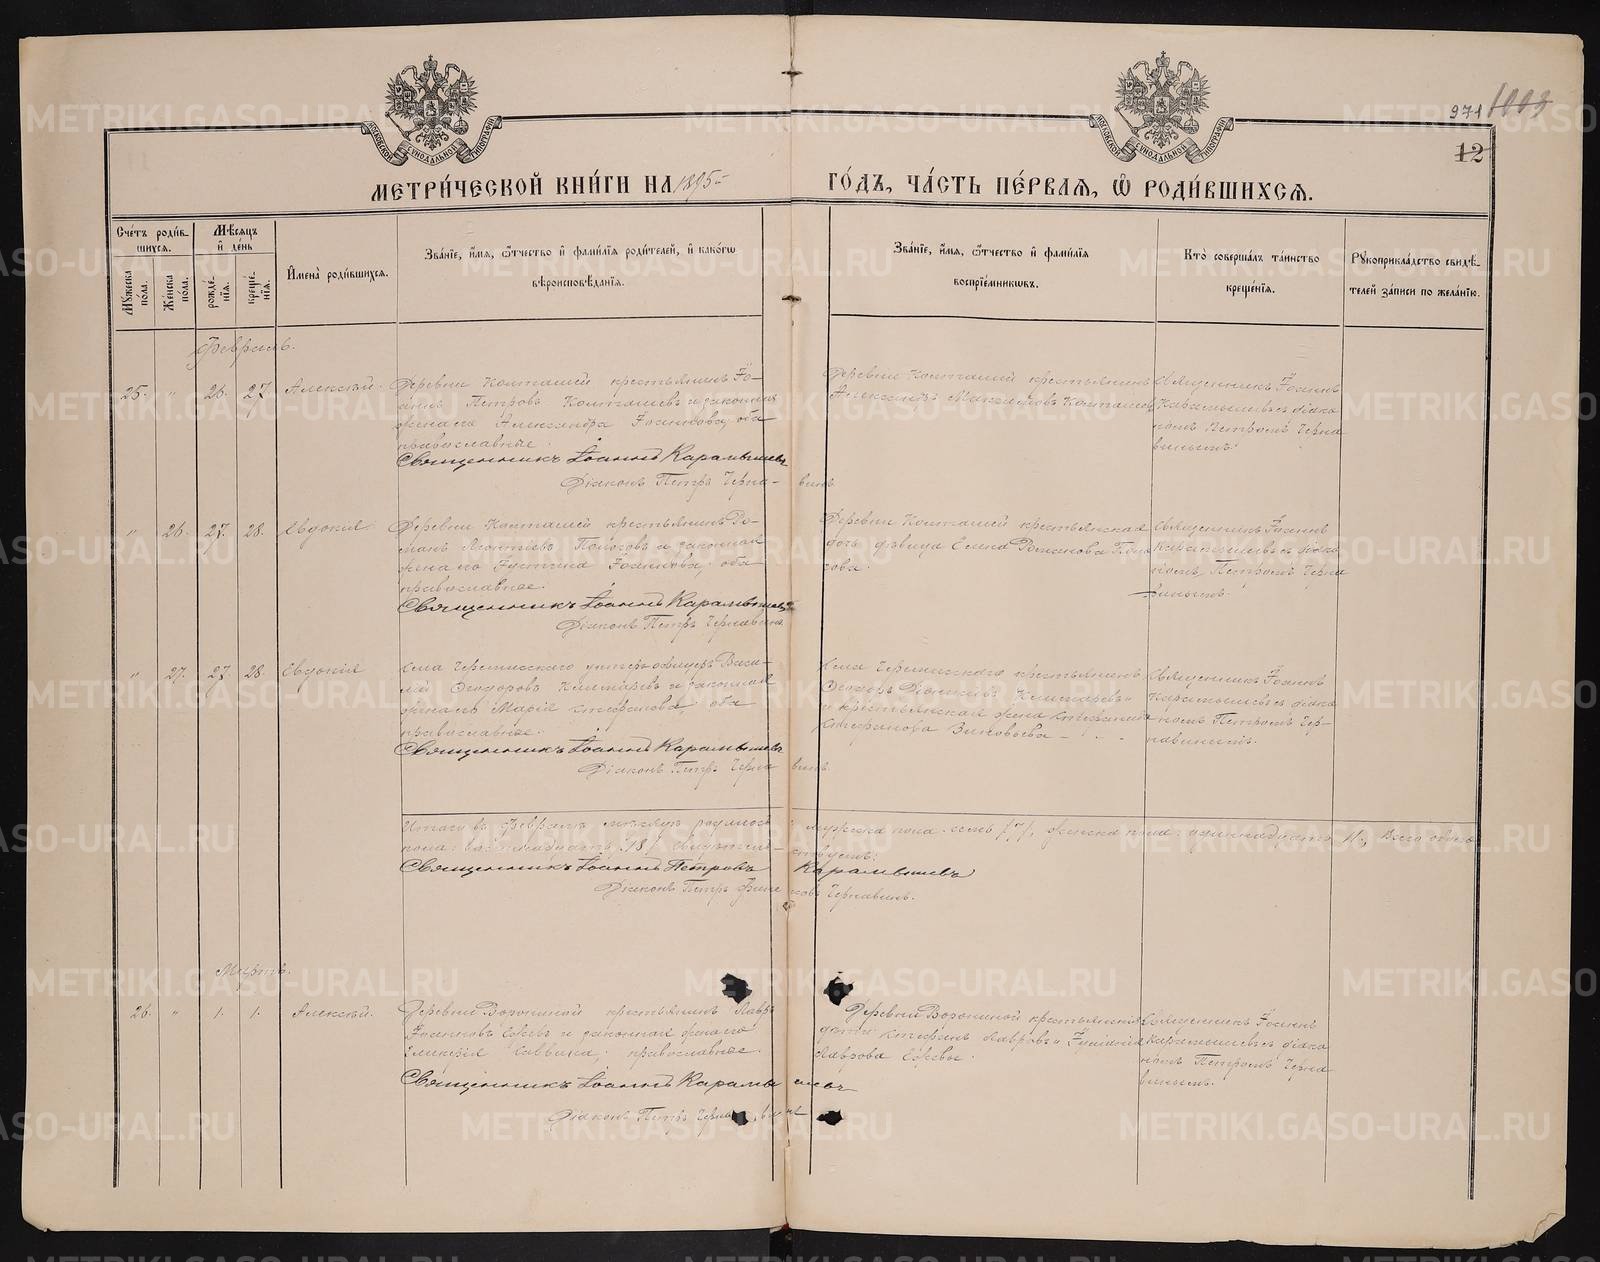 971 1003
12
МОСКОВСКОЙ СѴНОДАЛЬНОЙ ТИПОГРАФІИ
МОСКОВСКОЙ СѴНОДАЛЬНОЙ ТИПОГРАФІИ
МЕТРИ́ЧЕСКОЙ КНИ́ГИ НА 1895
ГО́ДЪ, ЧА́СТЬ ПЕ́РВАѦ, Ѿ РОДИ́ВШИХСѦ.
Сче́тъ роди́в-
шихся.
Мѣсяцъ
и де́нь
Мꙋжеска
пола.
Же́нска
пола.
рожде́-
нїя.
креще́-
нїя.
Имена̀ роди́вшихся.
Зва́нїе, и́мя, ѻ́тчество и фами́лїя роди́телей, и како́гѡ
вѣроисповѣ́данїя.
Зва́нїе, и́мя, ѻ́тчество и фами́лїя
воспрїе́мникѡвъ.
Кто̀ соверша́лъ та́инство
креще́нїя.
Рꙋкоприкла́дство свидѣ́-
телей за́писи по жела́нїю.
Февраль.
25. " 26. 27. Алексѣй.
Деревни Колташей крестьянинъ Іо-
аннъ Петровъ Колташевъ и законная
жена его Александра Іоаннова, оба
православные.
Священникъ Іоаннъ Карамышевъ
Діаконъ Петръ Чернавинъ
Деревни Колташей крестьянинъ
Александръ Колташевъ
Священникъ Іоаннъ
Карамышевъ съ діако
номъ Петромъ Черна
винымъ.
" 26. 27. 28. Евдокія
Деревни Колташей крестьянинъ Ро-
манъ Леонтіевъ и законная
жена его Іустина Іоаннова, оба
православные.
Священникъ Іоаннъ Карамышевъ
Діаконъ Петръ Чернавинъ
Деревни Колташей крестьянская
дочь дѣвица Елена Романова
Священникъ Іоаннъ
Карамышевъ съ діако
номъ Петромъ Черна
винымъ.
" 27. 27. 28. Евдокія
Села Черемисскаго унтеръ-офицеръ Васи-
лій Ѳеодоровъ и законная
жена его Марія Стефанова, оба
православные.
Священникъ Іоаннъ Карамышевъ
Діаконъ Петръ Чернавинъ
Села Черемисскаго крестьянинъ
Ѳеодоръ
и крестьянская жена
Стефанова Зиновьева
Священникъ Іоаннъ
Карамышевъ съ діако
номъ Петромъ Чер-
навинымъ.
Итого въ Февралѣ мѣсяцѣ родилось мужска пола семь /7/, женска пола одиннадцать /11/, Всего обоего
пола восемнадцать /18/. Свидѣтельствуемъ:
Священникъ Іоаннъ Петровъ Карамышевъ
Діаконъ Петръ Чернавинъ.
Мартъ.
26. " 1. 1. Алексѣй.
Деревни Ворониной крестьянинъ Лавръ
Іоанновъ и законная жена его
Саввина, православные.
Священникъ Іоаннъ Карамышевъ
Діаконъ Петръ
Деревни Ворониной крестьянскія
дѣти: Стефанъ Лавровъ и
Лаврова
Священникъ Іоаннъ
Карамышевъ съ діако
номъ Петромъ Черна
винымъ.
METRIKI.GASO-URAL.RU